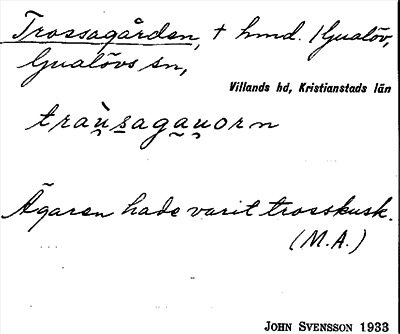 Trossagården, + hmd. i Gualöv,
Gualövs sn,
Villands hd, Kristianstads län
Ägaren hade varit trosskusk.
(M.A.)
JOHN SVENSSON 1933